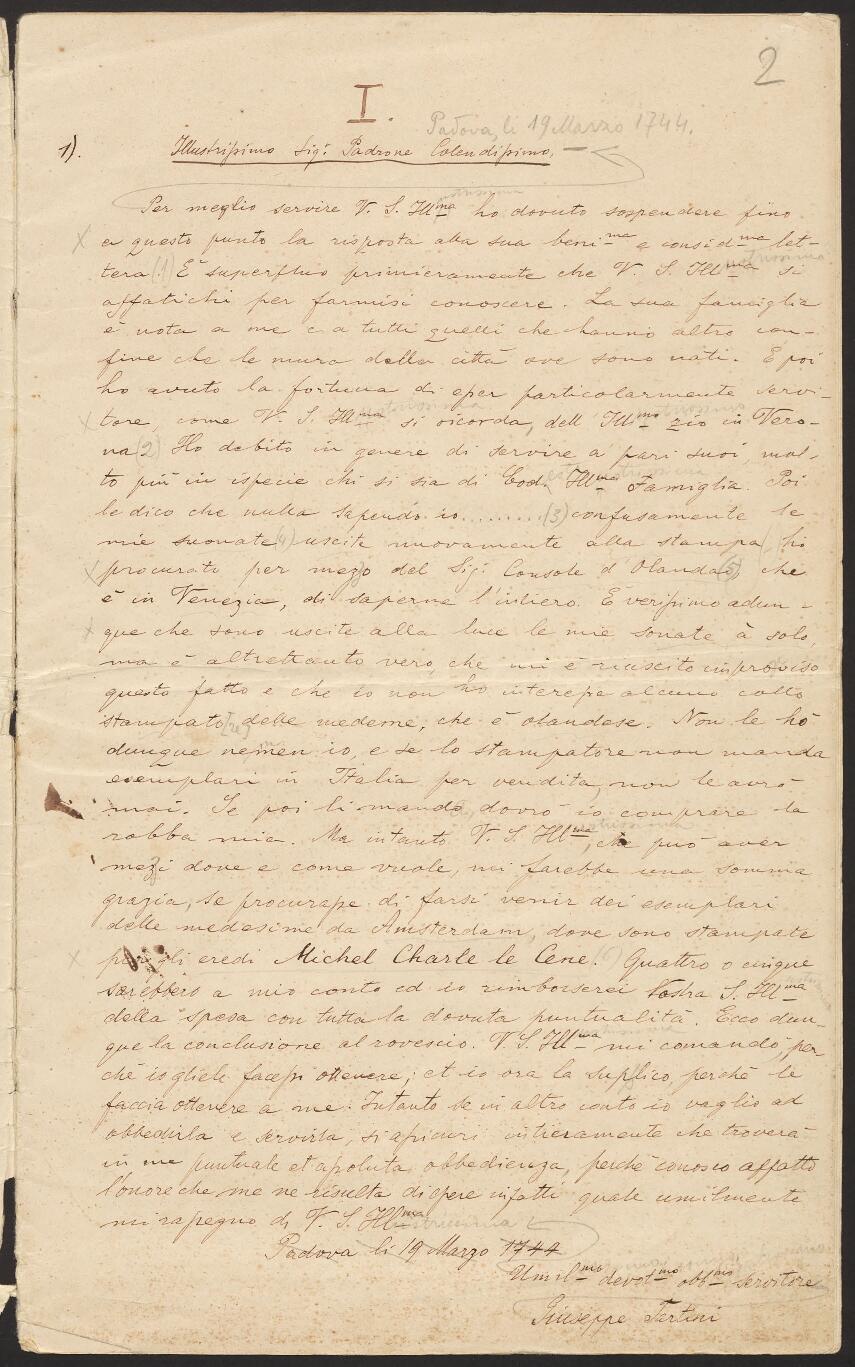 2
I.
Padova, li 19 Marzo 1744.
1). Illustrissimo Sig: Padrone Colendissimo,
Per meglio servire V. S. Illma ho dovuto sospendere fino
a questo punto la risposta alla sua benima e considma let-
tera (1) È superfluo primieramente che V. S. Illma si
affatichi per farmisi conoscere. La sua famiglia
è nota a me e a tutti quelli che hanno altro con-
fine che le mura della città ove sono nati. E poi
ho avuto la fortuna di esser particolarmente servi-
tore, come V. S. Illma si ricorda, dell' Illmo zio in Vero-
na (2) Ho debito in genere di servire a pari suoi, mol-
to più in ispecie chi si sia di Illma Famiglia. Poi
le dico che nulla sapendo io ......... (3) confusamente le
mie suonate (4) uscite nuovamente alla stampa, ho
procurato per mezo del Sig: Console d'Olanda (5) che
è in Venezia, di saperne l'intiero. E verissimo adun-
que che sono uscite alla luce le mie sonate à solo,
ma è altrettanto vero, che mi è riuscito improviso
questo fatto e che io non ho interesse alcuno collo
stampato[re] delle medeme, che è olandese. Non le hò
dunque nemen io, e se lo stampatore non manda
esemplari in Italia per vendita, non le avrò
mai. Se poi li manda, dovrò io comprare la
robba mia. Ma intanto V. S. Illma, che può aver
mezi dove e come vuole, mi farebbe una somma
grazia, se procurasse di farsi venir dei esemplari
delle medesime da Amsterdam, dove sono stampate
per gli eredi Michel Charle le Cene. (6) Quattro o cinque
sarebbero a mio conto ed io rimborserei Vostra S. Illma
della spesa con tutta la dovuta puntualità. Ecco dun-
que la conclusione al rovescio. V. S. Illma mi comandò, per-
chè io gliele facessi ottenere; et io ora la suplico, perchè le
faccia ottenere a me. Intanto se in altro conto io vaglio ad
obbedirla e servirla, si assicuri intieramente che troverà
in me puntuale et assoluta obbedienza, perchè conosco affatto
l'onore che me ne risulta di essere infatti quale umilmente
mi rassegno di V. S. Illma
Padova li 19 Marzo 1744
Umilmo devotmo obbmo servitore
Giuseppe Tartini